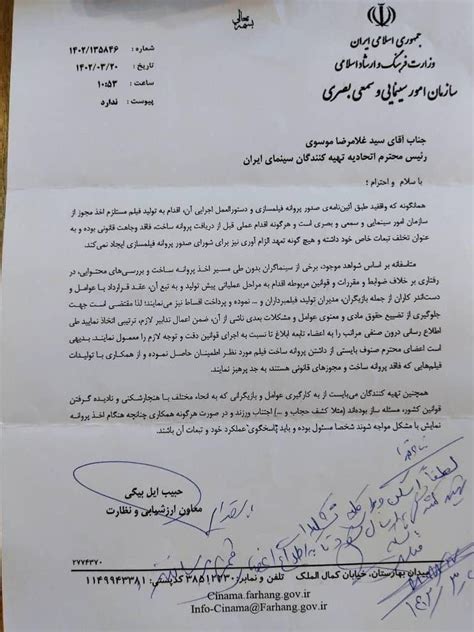 بسمه تعالی
جمهوری اسلامی ایران
وزارت فرهنگ و ارشاد اسلامی
سازمان امور سینمایی و سمعی بصری
شماره : ۱۴۰۲/۱۳۵۸۴۶
تاریخ : ۱۴۰۲/۰۳/۲۰
ساعت : ۱۰:۵۳
پیوست : ندارد
جناب آقای سید غلامرضا موسوی
رئیس محترم اتحادیه تهیه کنندگان سینمای ایران
با سلام و احترام ؛
همانگونه که واقفید طبق آئین‌نامه‌ی صدور پروانه فیلمسازی و دستورالعمل اجرایی آن، اقدام به تولید فیلم مستلزم اخذ مجوز از
سازمان امور سینمایی و سمعی و بصری است و هرگونه اقدام عملی قبل از دریافت پروانه ساخت، فاقد وجاهت قانونی بوده و به
عنوان تخلف تبعات خاص خود داشته و هیچ گونه تعهد الزام آوری نیز برای شورای صدور پروانه فیلمسازی ایجاد نمی‌کند.
متاسفانه بر اساس شواهد موجود، برخی از سینماگران بدون طی مسیر اخذ پروانه ساخت و بررسی‌های محتوایی، در
رفتاری بر خلاف ضوابط و مقررات و قوانین مربوطه اقدام به مراحل عملیاتی پیش تولید و به تبع آن، عقد قرارداد با عوامل و
دست‌اندر کاران از جمله بازیگران، مدیران تولید، فیلمبرداران و ... نموده و پرداخت اقساط نیز می‌نمایند؛ لذا مقتضی است جهت
جلوگیری از تضییع حقوق مادی و معنوی عوامل و مشکلات بعدی ناشی از آن، ضمن اعمال تدابیر لازم، ترتیبی اتخاذ نمایید طی
اطلاع رسانی درون صنفی مراتب را به اعضاء تابعه ابلاغ تا نسبت به اجرای قوانین دقت و توجه لازم را معمول نماید. بدیهی
است اعضای محترم صنوف بایستی از داشتن پروانه ساخت فیلم مورد نظر اطمینان حاصل نموده و از همکاری با تولیدات
فیلم‌هایی که فاقد پروانه ساخت و مجوزهای قانونی هستند، به جد پرهیز نمایند.
همچنین تهیه کنندگان می‌بایست از به کارگیری عوامل و بازیگرانی که به انحاء مختلف با هنجارشکنی و نادیده گرفتن
قوانین کشور، مسئله ساز بوده‌اند (مثلا کشف حجاب و ...) اجتناب ورزند و در صورت هرگونه همکاری چنانچه هنگام اخذ پروانه
نمایش با مشکل مواجه شوند شخصا مسئول بوده و باید پاسخگوی عملکرد خود و تبعات آن باشند.
حبیب ایل بیگی
معاون ارزشیابی و نظارت
۲۷۷۴۳۷۰
میدان بهارستان، خیابان کمال الملک تلفن و نمابر: ۳۸۵۱۲۲۳۰ کدپستی: ۱۱۴۹۹۴۳۳۸۱
Cinama.farhang.gov.ir
Info-Cinama@Farhang.gov.ir